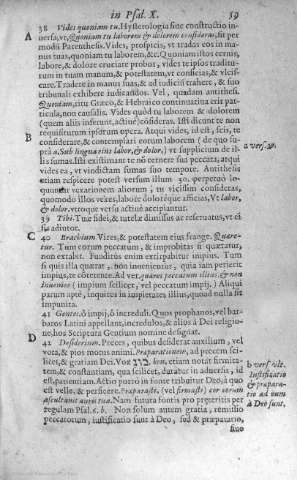 in Psal. X. 59
38 Vides quoniam tu. Hysterologia siue constructio in-
A uersa, vt, Quoniam tu laborem & dolorem consideras, sit per
modū Parenthesis. Vides, prospicis, vt tradas eos in ma-
nus tuas, quoniam tu laborem, &c. Quoniam istos cernis,
labore, & dolore cruciare probos, vides te ipsos traditu-
rum in tuam manum, & potestatem, vt conscias, & vlcis-
care. Tradere in manus suas, & ad iudiciū trahere, & suo
tribunali exhibere iudicandos. Vel, quædam antithesi.
Quandam, ritu Græco, & Hebraico continuatiua erit par-
ticula, non causalis. Vides quòd tu laborem & dolorem
(quem alijs inferunt, actiuè) consideras. Isti dicunt te non
B requisiturum ipsorum opera. Atqui vides, id est, scis, te
considerare, & contemplari eorum laborem (de quo su-
prà a. Sub lingua eius labor, & dolor,) vt supplicium de il- a vers. 30.
lis sumas. Isti existimant te nō cernere sua peccata, atqui
vides ea, vt vindictam sumas suo tempore. Antithesis
etiam respicere potest versum illum 30. perpetuò lo-
quuntur vexationem aliorum; tu vicissim consideras,
quomodo illos vexes, labore doloréque afficias, Vt labor,
& dolor vtroque versu actiuè accipiantur.
39 Tibi. Tuæ fidei, & tutelæ dimissus ac reseruatus, vt ei
sis adiutor.
C 40 Brachium Vires, & potestatem eius frange. Quære-
tur. Tum eorum peccatum, & improbitas si quæratur,
non extabit. Funditùs enim extirpabitur impius. Tum
si quis illa quærat, non inuenientur, quia iam perierit
impius, te cōterente. Ad ver. quæres peccatum illius, & non
inuenies (impium scilicet, vel peccatum impij.) Aliqui
parum aptè, inquires in impietates illius, quoad nulla sit
impunita.
41 Gentes. Ad impij, & increduli. Quos prophanos, vel bar-
baros Latini appellant, incredulos, & alios à Dei religio-
ne, hos Scriptura Gentium nomine designat.
D 42 Desiderium. Preces, quibus desiderat auxilium, vel
vota, & pios motus animi. Præparationem, ad precem sci-
licet, & gratiam Dei. Vox etiam notat firmita- b vers. vlt.
tem, & constantiam, qua scilicet, durabat in aduersis, id Iustificatio
est, patientiam. Actio porrò in fonte tribuitur Deo, à quo & præpara-
est velle, & perficere. Præparasti, (vel firmasti) cor eorum tio ad eam
ascultauit auris tua. Nam futura fontis pro præteritis per à Deo sunt.
regulam Psal. 6. b. Non solum autem gratia, remissio
peccatorum, iustificatio sunt à Deo, sed & præparatio,
siue